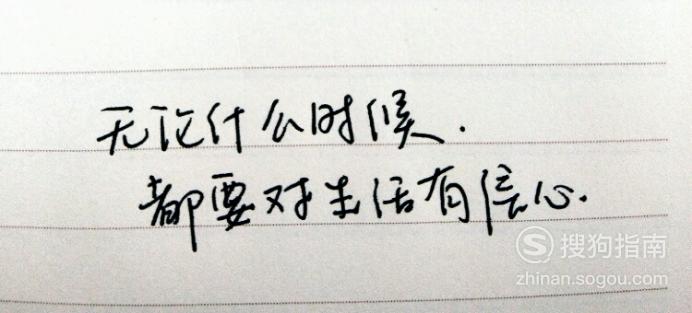 无论什么时候.
都要对生活有信心.
搜狗指南
zhinan.sogou.com